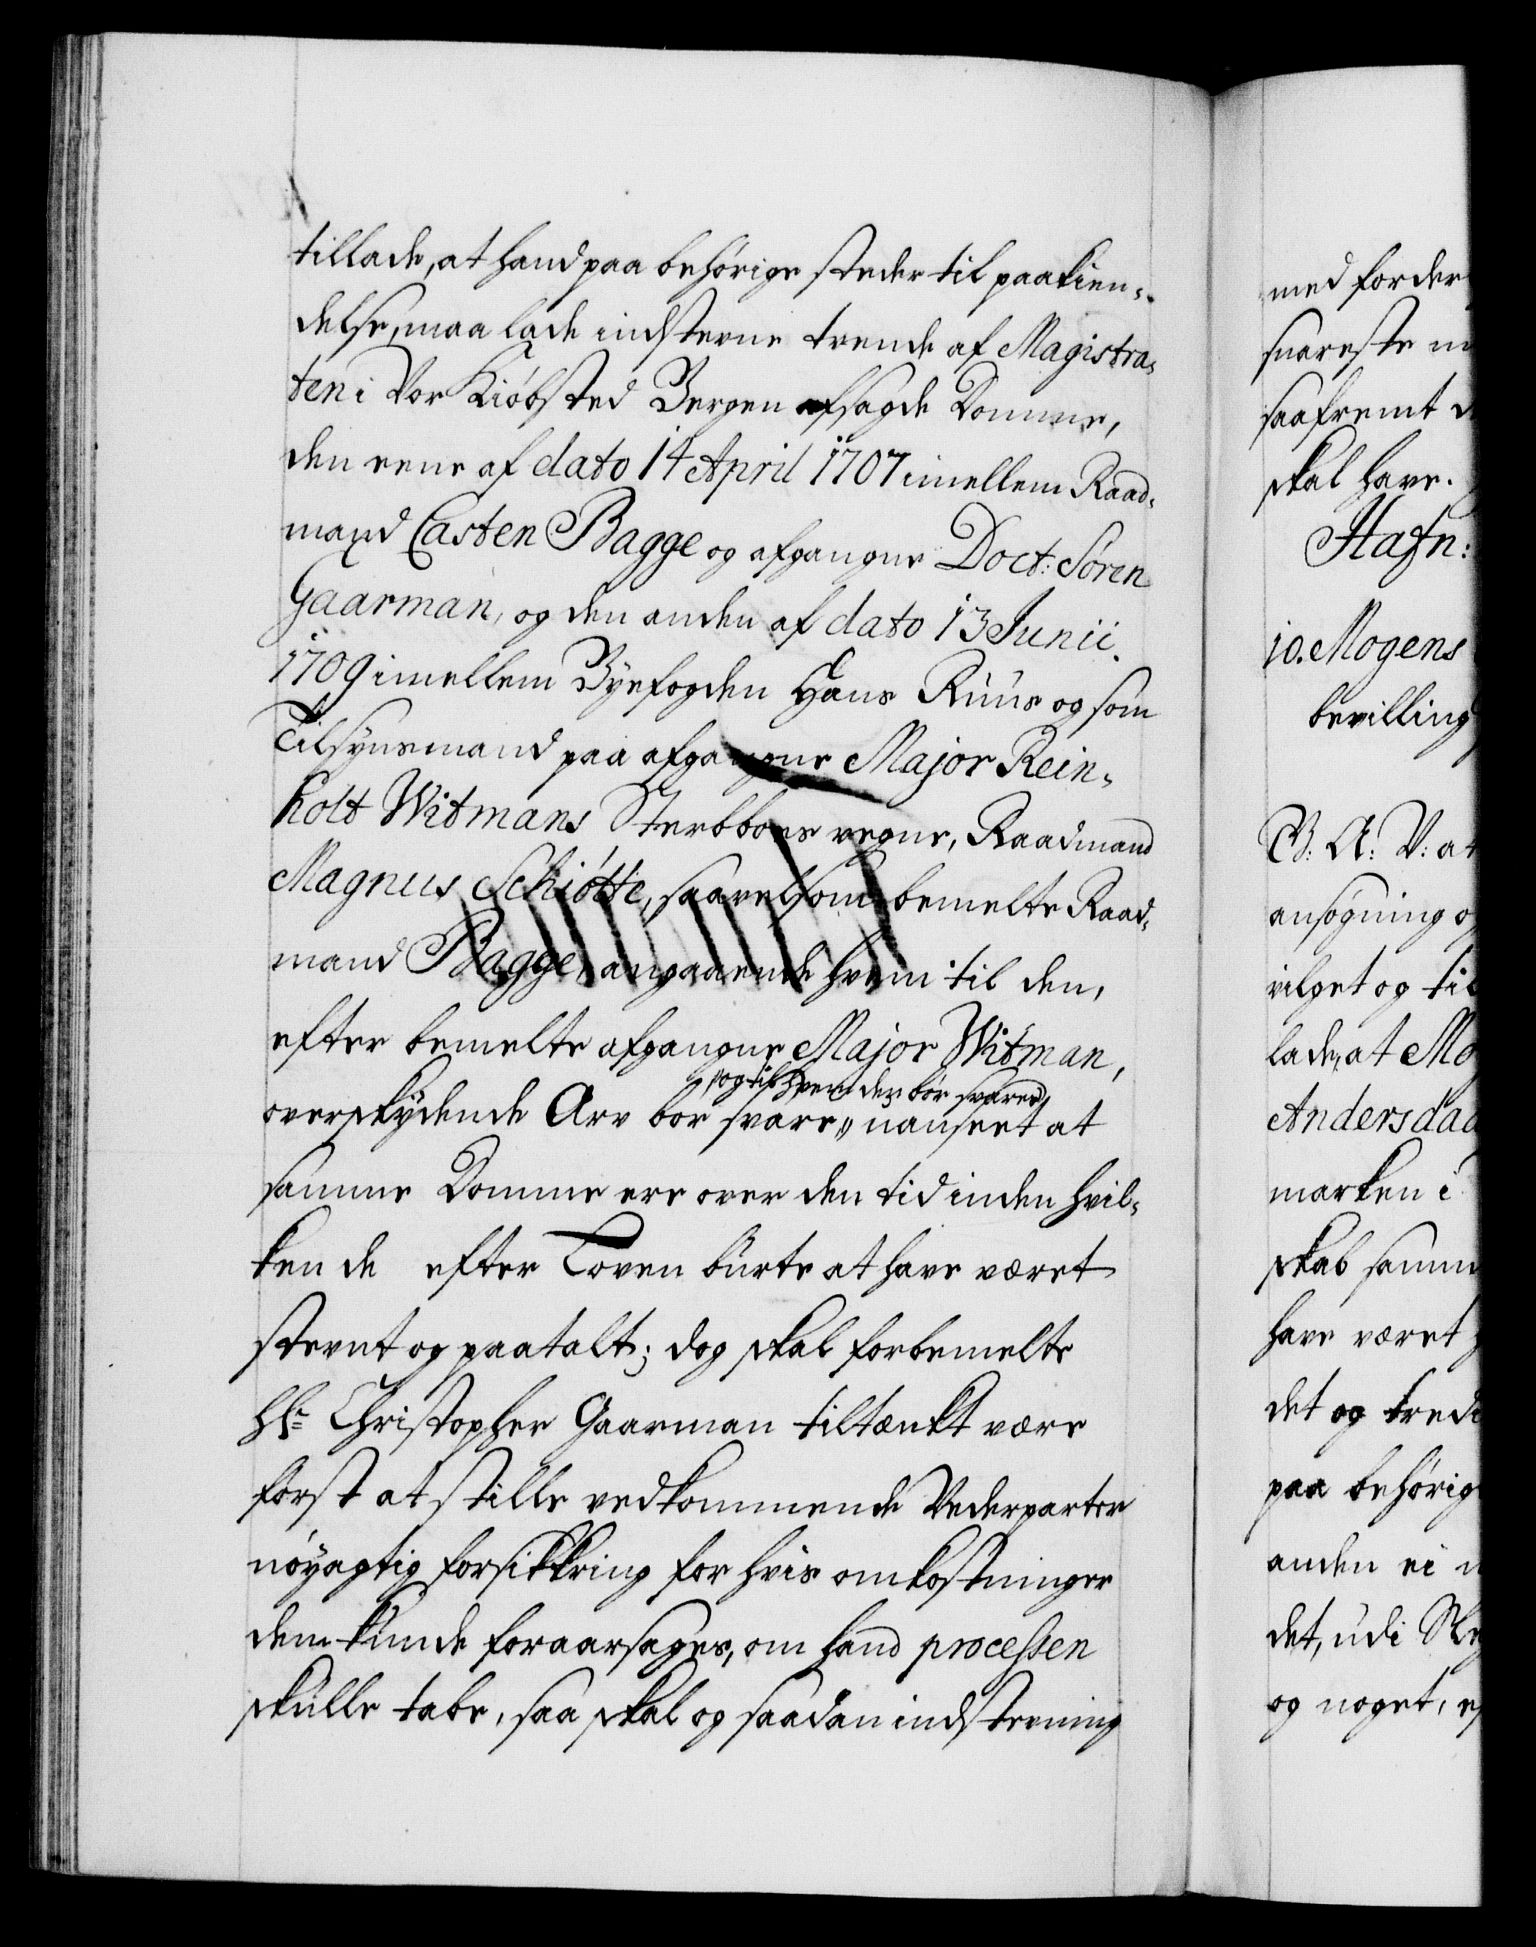 tillade, at hand paa behörige steder til paakien-
delse, maa lade indsterne trende af Magistra-
ten i Vor Kiöbsted Bergen afsagde Domme,
den eene af dato 14 April 1707 imellem Raad-
mand Casten Bagge og afgangne Doct: Sören
Gaarman, og den anden af dato 13 Junii
1709 imellem Byefogden Hans Ruus og som
Tilsynsmand paa afgangne Major Rein-
holt Witmans Sterbboes vegne, Raadmand
Magnus Schiötte, saavelsom bemelte Raad-
mand Bagge, angaaende hvem til den,
efter bemelte afgangne Major Witman,
og til hvem der bör svares
overskydende Arv bör svare, uanseet at
samme Domme ere over den tid inden hvil-
ken de efter Loven burte at have været
stevnt og paatalt; dog skal forbemelte
Hr Christopher Gaarman tiltænkt være
först at stille vedkommende Vederparter
nöyagtig forsikkring for hvis omkostninger
dem kunde foraarsages, om hand processen
skulle tabe, saa skal og saadan indstevning
med forder
snareste
saafremt
skal have.
Hafn:
10. Mogens
bevilling
G: A: V: at
ansögning
vilget og til
lade, at Mo
Andersdaa
marken i
skab samm
have været
det og tredi
paa behörig
anden ei
det, udi
og noget,